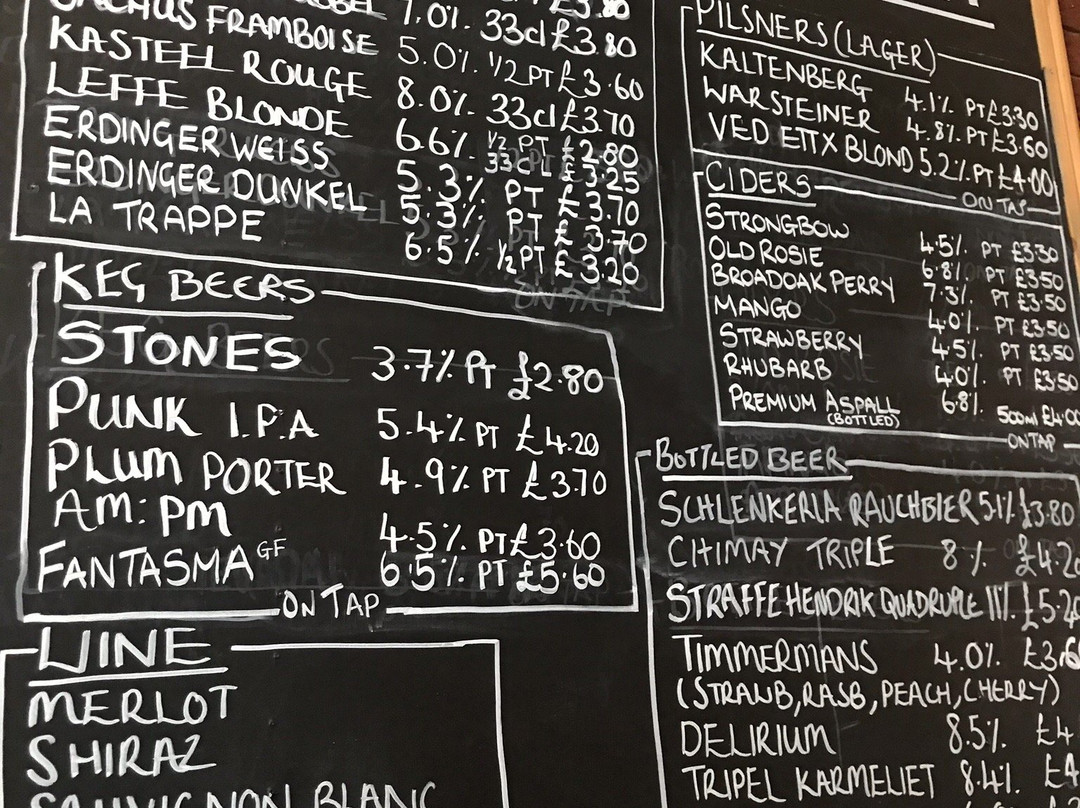 7.0%. 33cl £3.80
BACCHUS FRAMBOISE 5.0%. 1/2 PT £3.60
KASTEEL ROUGE 8.0%. 33cl £3.70
LEFFE BLONDE 6.6%. 1/2 PT £2.80
33cL £3.25
ERDINGER WEISS 5.3% PT £3.70
ERDINGER DUNKEL 5.3% PT £3.70
LA TRAPPE 6.5% 1/2 PT £3.20
ON TAP
KEG BEERS
STONES 3.7% PT £2.80
PUNK I.P.A 5.4% PT £4.20
PLUM PORTER 4.9% PT £3.70
AM:PM 4.5% PT £3.60
FANTASMA GF 6.5% PT £5.60
ON TAP
WINE
MERLOT
SHIRAZ
SAUVIGNON BLANC
PILSNERS (LAGER)
KALTENBERG 4.1%. PT £3.30
WARSTEINER 4.8%. PT £3.60
VEDETTX BLOND 5.2%. PT £4.00
ON TAP
CIDERS
STRONGBOW 4.5%. PT £3.30
OLD ROSIE 6.8%. PT £3.50
BROADOAK PERRY 7.3%. PT £3.50
MANGO 4.0%. PT £3.50
STRAWBERRY 4.5%. PT £3.50
RHUBARB 4.0%. PT £3.50
PREMIUM ASPALL 6.8%. 500ml £4.00
(BOTTLED)
ON TAP
BOTTLED BEER
SCHLENKERLA RAUCHBIER 5.1% £3.80
CHIMAY TRIPLE 8%. £4.2
STRAFFE HENDRIK QUADRUPLE 11%. £5.20
TIMMERMANS 4.0%. £3.6
(STRAWB, RASB, PEACH, CHERRY)
DELIRIUM 8.5%. £4
TRIPEL KARMELIET 8.4%. £4